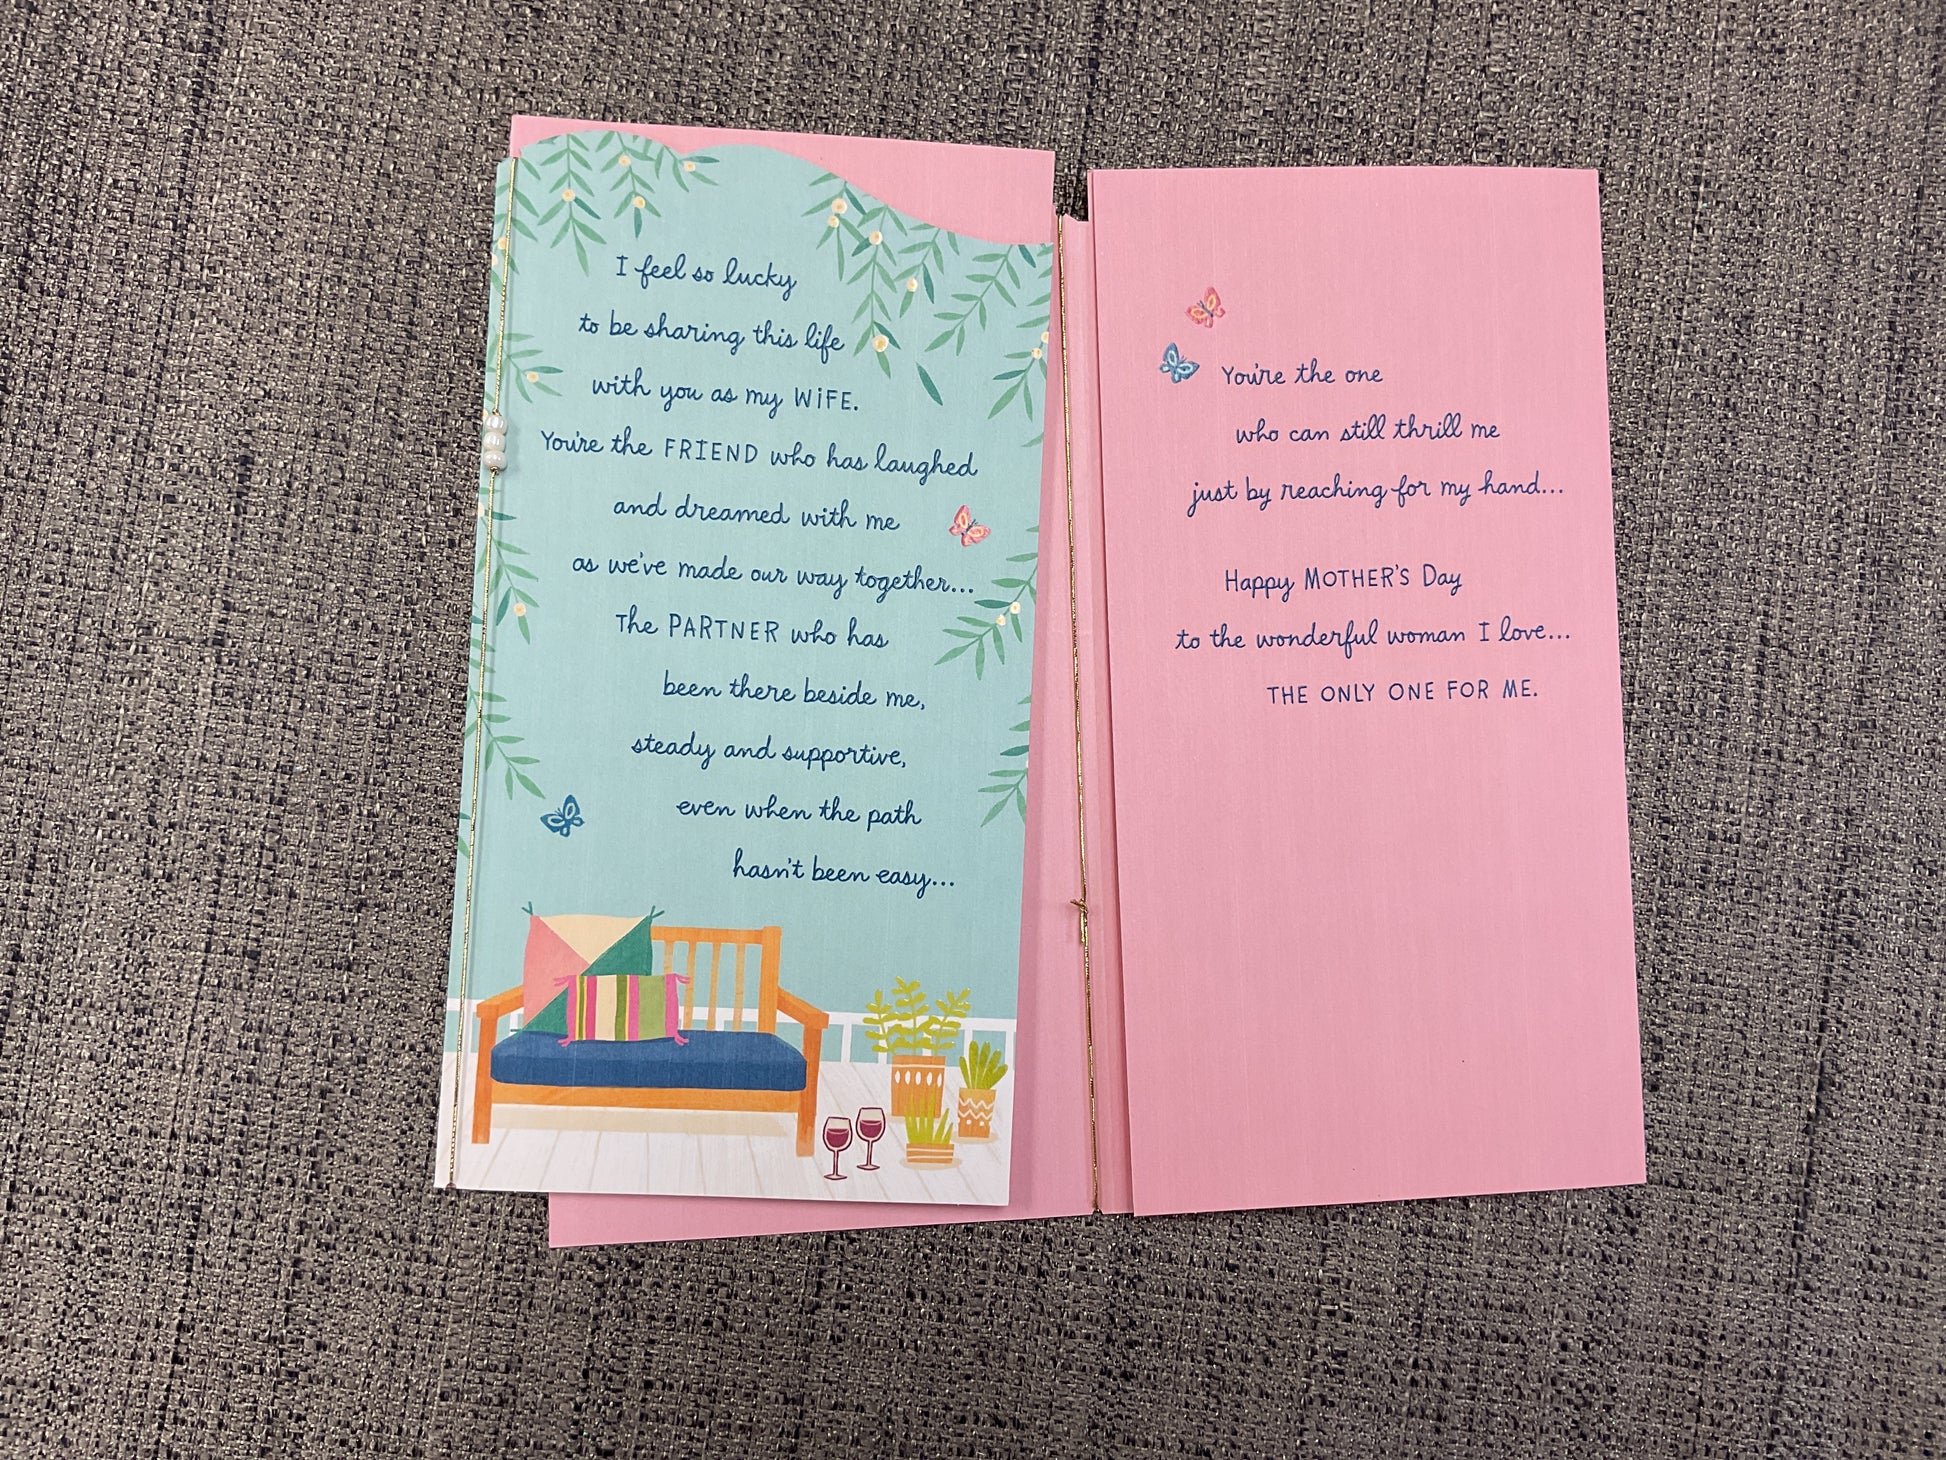 I feel so lucky
to be sharing this life
with you as my WiFE.
You're the FRIEND who has laughed
and dreamed with me
as we've made our way together...
The PARTNER who has
been there beside me,
steady and supportive,
even when the path
hasn't been easy...
You're the one
who can still thrill me
just by reaching for my hand...
Happy MOTHER'S Day
to the wonderful woman I love...
THE ONLY ONE FOR ME.